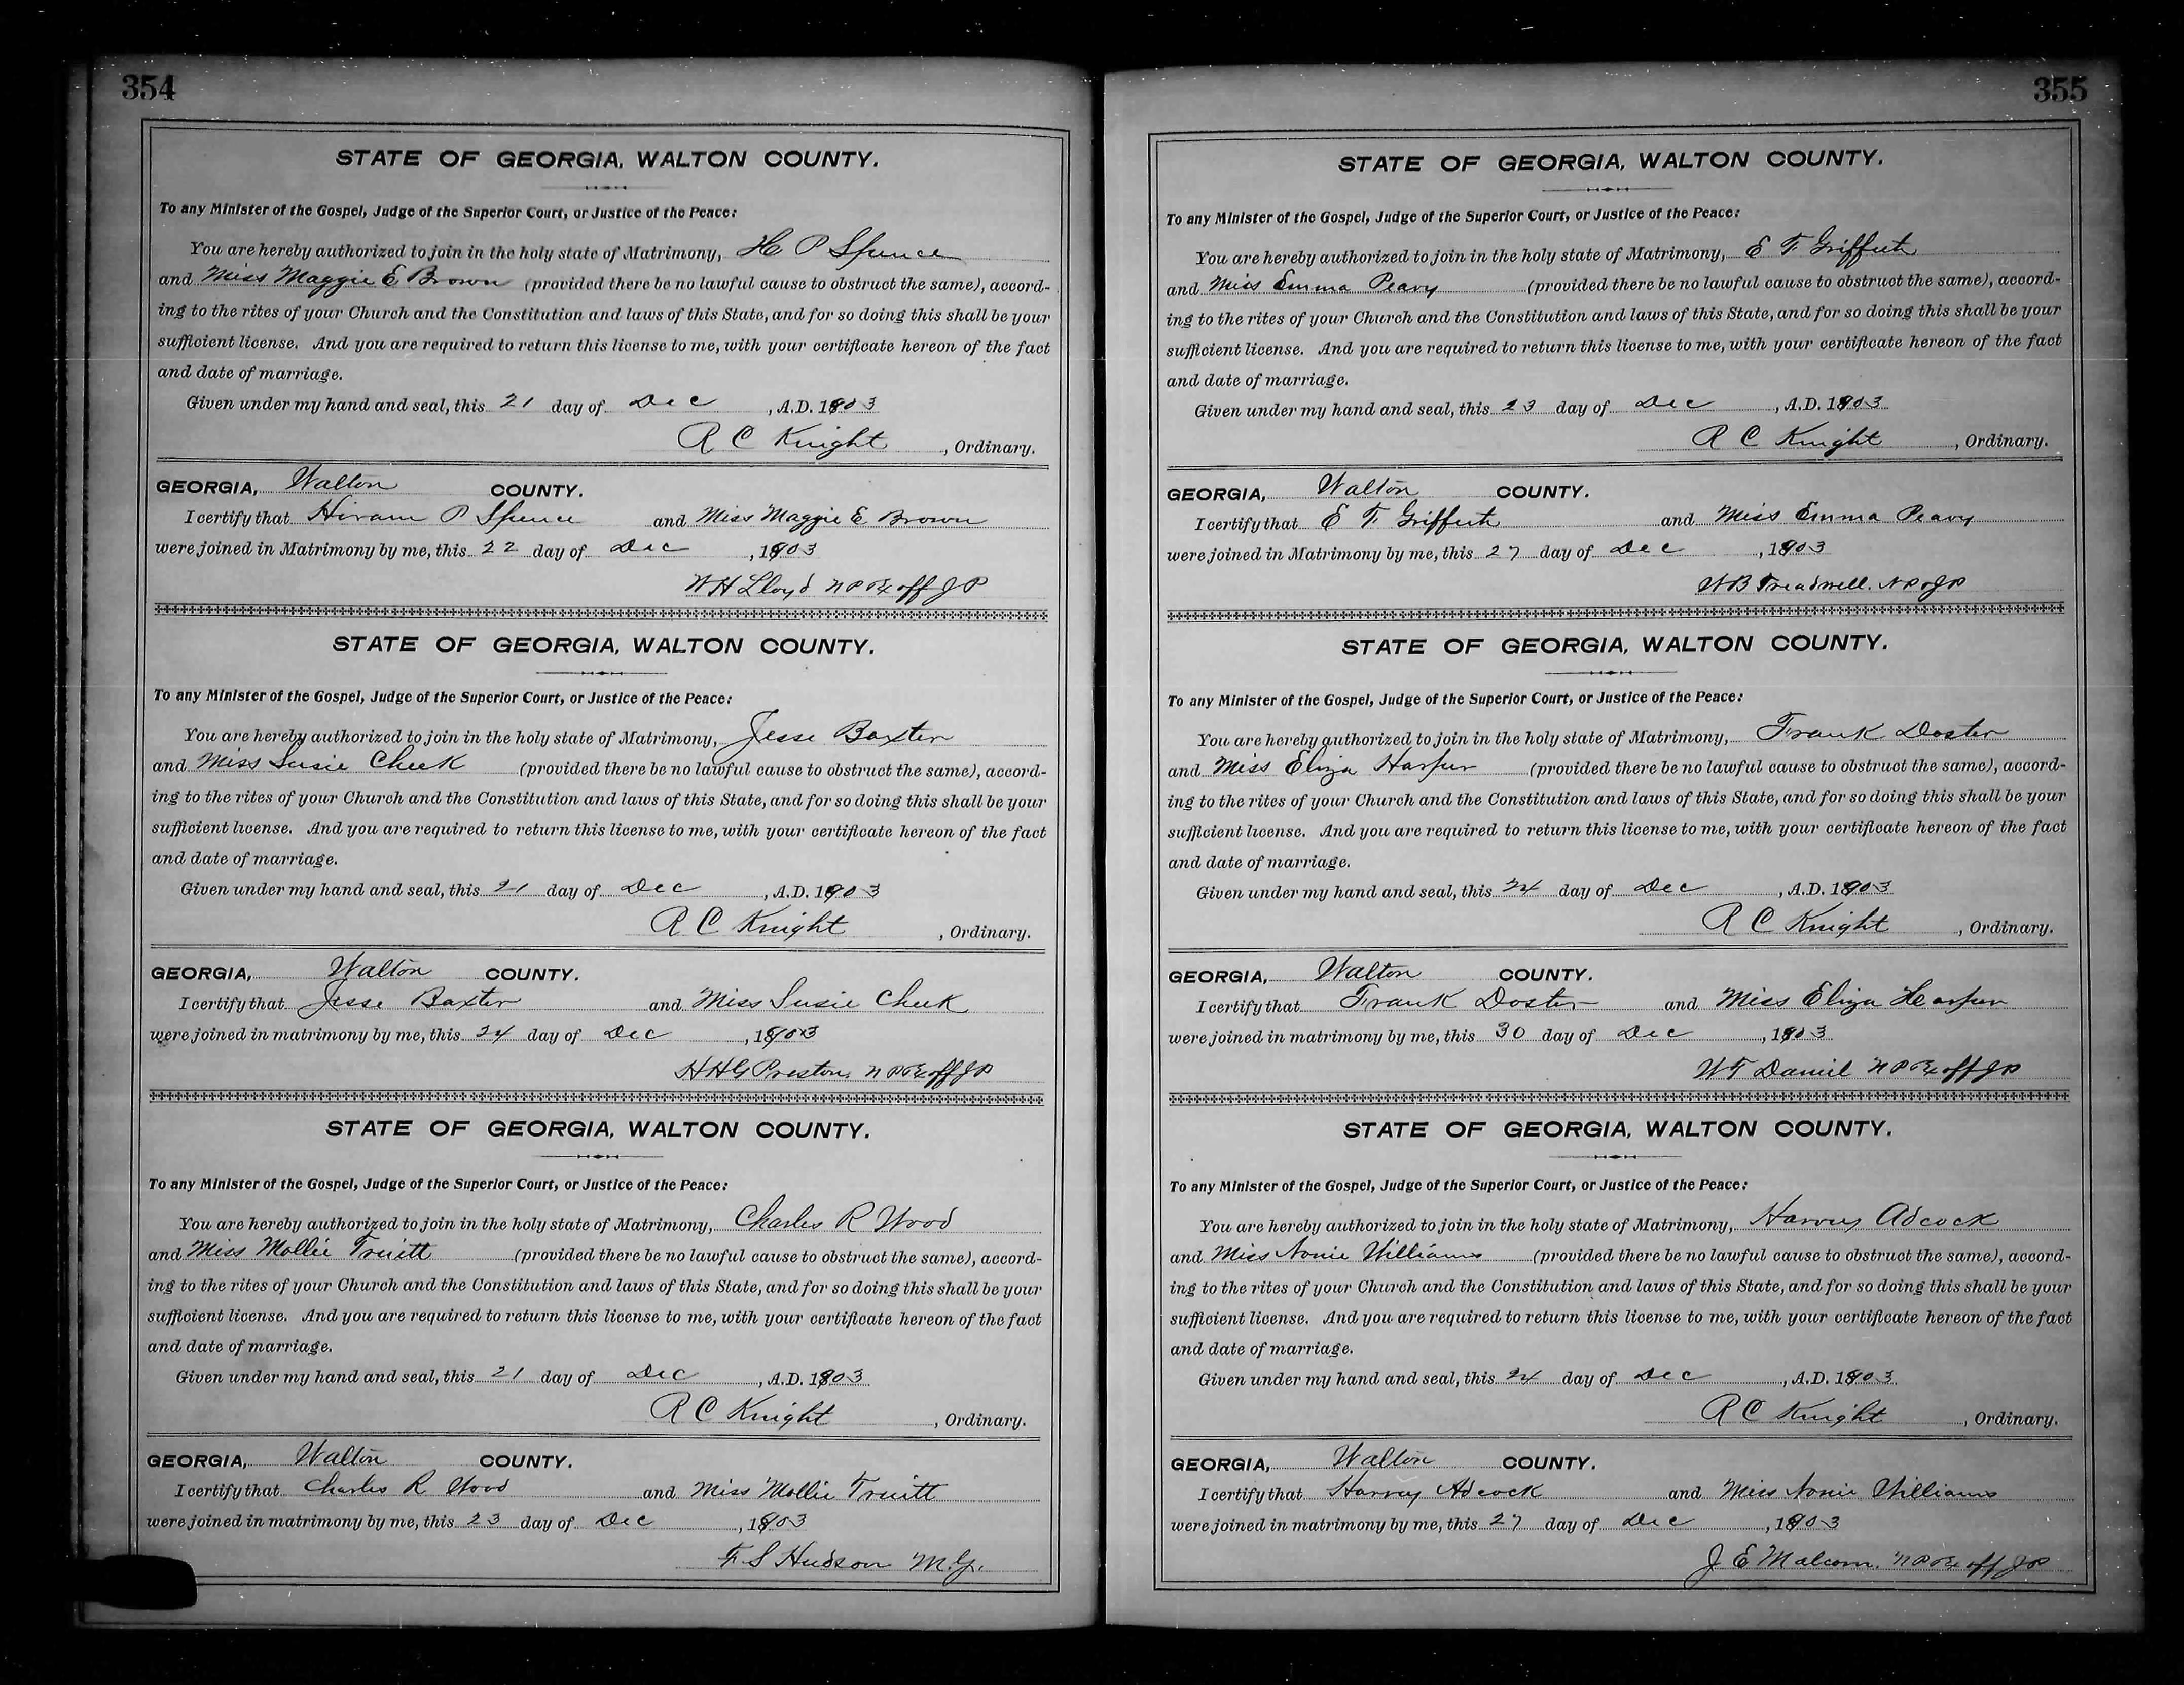 354
STATE OF GEORGIA, WALTON COUNTY.
To any Minister of the Gospel, Judge of the Superior Court, or Justice of the Peace:
You are hereby authorized to join in the holy state of Matrimony, H P Spence
and Miss Maggie E Brown (provided there be no lawful cause to obstruct the same), accord-
ing to the rites of your Church and the Constitution and laws of this State, and for so doing this shall be your
sufficient license. And you are required to return this license to me, with your certificate hereon of the fact
and date of marriage.
Given under my hand and seal, this 21 day of Dec , A.D. 1903
R C Knight , Ordinary.
GEORGIA, Walton COUNTY.
I certify that Hiram P Spence and Miss Maggie E Brown
were joined in Matrimony by me, this 22 day of Dec , 1903
W H Lloyd N P Ex off J P
STATE OF GEORGIA, WALTON COUNTY.
To any Minister of the Gospel, Judge of the Superior Court, or Justice of the Peace:
You are hereby authorized to join in the holy state of Matrimony, Jesse Baxter
and Miss Susie Cheek (provided there be no lawful cause to obstruct the same), accord-
ing to the rites of your Church and the Constitution and laws of this State, and for so doing this shall be your
sufficient license. And you are required to return this license to me, with your certificate hereon of the fact
and date of marriage.
Given under my hand and seal, this 21 day of Dec , A.D. 1903
R C Knight , Ordinary.
GEORGIA, Walton COUNTY.
I certify that Jesse Baxter and Miss Susie Cheek
were joined in matrimony by me, this 24 day of Dec , 1903
H H G Preston N P Ex off J P
STATE OF GEORGIA, WALTON COUNTY.
To any Minister of the Gospel, Judge of the Superior Court, or Justice of the Peace:
You are hereby authorized to join in the holy state of Matrimony, Charles R Wood
and Miss Mollie Truitt (provided there be no lawful cause to obstruct the same), accord-
ing to the rites of your Church and the Constitution and laws of this State, and for so doing this shall be your
sufficient license. And you are required to return this license to me, with your certificate hereon of the fact
and date of marriage.
Given under my hand and seal, this 21 day of Dec , A.D. 1903
R C Knight , Ordinary.
GEORGIA, Walton COUNTY.
I certify that Charles R Wood and Miss Mollie Truitt
were joined in matrimony by me, this 23 day of Dec , 1903
F S Hudson M.G.
355
STATE OF GEORGIA, WALTON COUNTY.
To any Minister of the Gospel, Judge of the Superior Court, or Justice of the Peace:
You are hereby authorized to join in the holy state of Matrimony, E T Griffeth
and Miss Emma Peavy (provided there be no lawful cause to obstruct the same), accord-
ing to the rites of your Church and the Constitution and laws of this State, and for so doing this shall be your
sufficient license. And you are required to return this license to me, with your certificate hereon of the fact
and date of marriage.
Given under my hand and seal, this 23 day of Dec , A.D. 1903
R C Knight , Ordinary.
GEORGIA, Walton COUNTY.
I certify that E T Griffeth and Miss Emma Peavy
were joined in Matrimony by me, this 27 day of Dec , 1903
W B Treadwell. N P & J P
STATE OF GEORGIA, WALTON COUNTY.
To any Minister of the Gospel, Judge of the Superior Court, or Justice of the Peace:
You are hereby authorized to join in the holy state of Matrimony, Frank Doster
and Miss Eliza Harper (provided there be no lawful cause to obstruct the same), accord-
ing to the rites of your Church and the Constitution and laws of this State, and for so doing this shall be your
sufficient license. And you are required to return this license to me, with your certificate hereon of the fact
and date of marriage.
Given under my hand and seal, this 24 day of Dec , A.D. 1903
R C Knight , Ordinary.
GEORGIA, Walton COUNTY.
I certify that Frank Doster and Miss Eliza Harper
were joined in matrimony by me, this 30 day of Dec , 1903
W T Daniel N P Ex off J P
STATE OF GEORGIA, WALTON COUNTY.
To any Minister of the Gospel, Judge of the Superior Court, or Justice of the Peace:
You are hereby authorized to join in the holy state of Matrimony, Harvey Adcock
and Miss Nonie Williams (provided there be no lawful cause to obstruct the same), accord-
ing to the rites of your Church and the Constitution and laws of this State, and for so doing this shall be your
sufficient license. And you are required to return this license to me, with your certificate hereon of the fact
and date of marriage.
Given under my hand and seal, this 24 day of Dec , A.D. 1903
R C Knight , Ordinary.
GEORGIA, Walton COUNTY.
I certify that Harvey Adcock and Miss Nonie Williams
were joined in matrimony by me, this 27 day of Dec , 1903
J E Malcom. N P Ex off J P